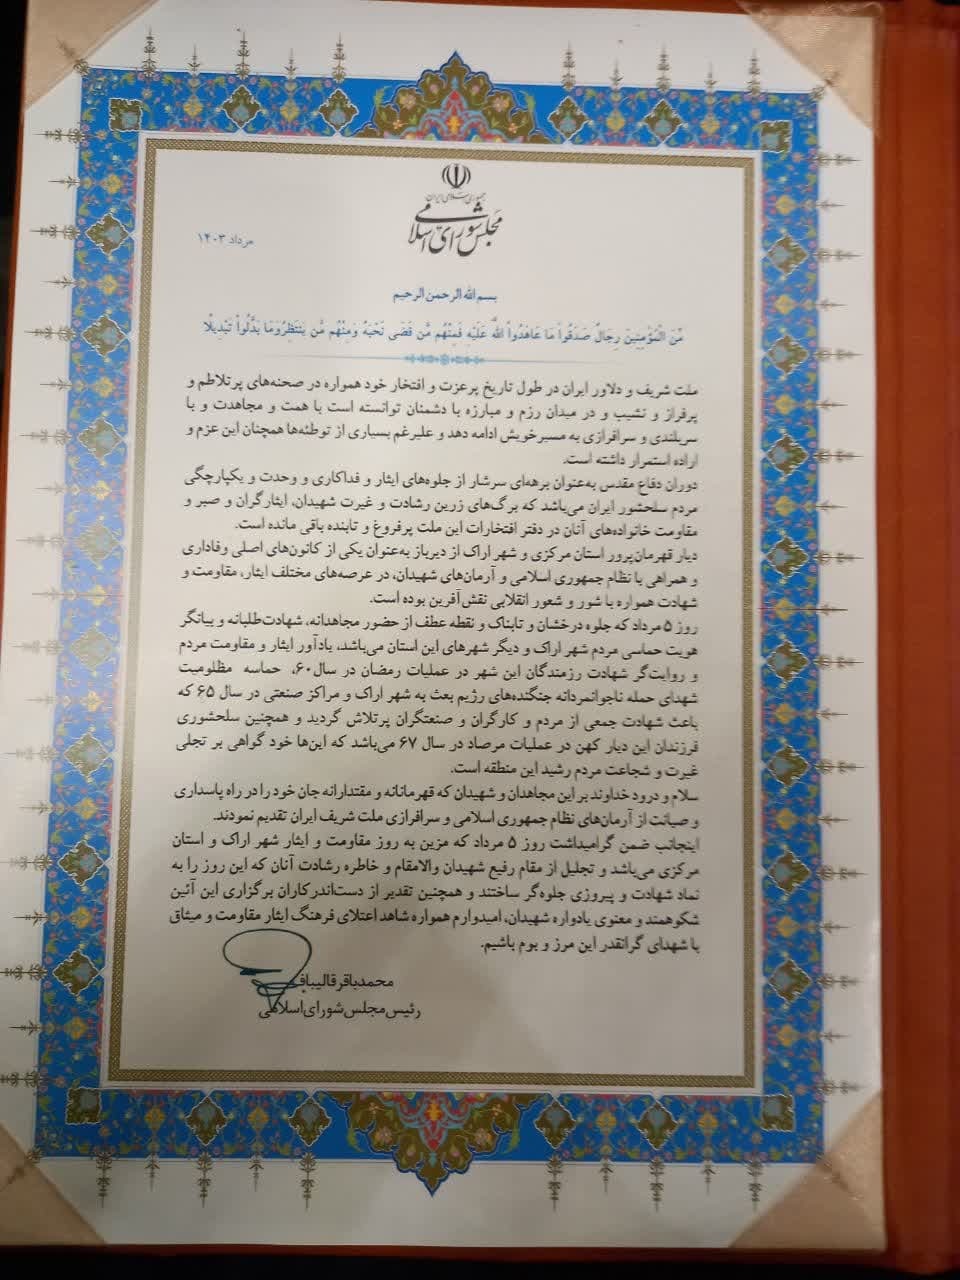 جمهوری اسلامی ایران
مجلس شورای اسلامی
مرداد ۱۴۰۳
بسم الله الرحمن الرحیم
مِّنَ الْمُؤْمِنِینَ رِجَالٌ صَدَقُواْ مَا عَاهَدُواْ اللَّهَ عَلَیْهِ فَمِنْهُم مَّن قَضَی نَحْبَهُ وَمِنْهُم مَّن یَنتَظِرُ وَمَا بَدَّلُواْ تَبْدِیلًا
ملت شریف و دلاور ایران در طول تاریخ پرعزت و افتخار خود همواره در صحنه‌های پرتلاطم و
پرفراز و نشیب و در میدان رزم و مبارزه با دشمنان توانسته است با همت و مجاهدت و با
سربلندی و سرافرازی به مسیرخویش ادامه دهد و علیرغم بسیاری از توطئه‌ها همچنان این عزم و
اراده استمرار داشته است.
دوران دفاع مقدس به‌عنوان برهه‌ای سرشار از جلوه‌های ایثار و فداکاری و وحدت و یکپارچگی
مردم سلحشور ایران می‌باشد که برگ‌های زرین رشادت و غیرت شهیدان، ایثارگران و صبر و
مقاومت خانواده‌های آنان در دفتر افتخارات این ملت پرفروغ و تابنده باقی مانده است.
دیار قهرمان‌پرور استان مرکزی و شهر اراک از دیرباز به‌عنوان یکی از کانون‌های اصلی وفاداری
و همراهی با نظام جمهوری اسلامی و آرمان‌های شهیدان، در عرصه‌های مختلف ایثار، مقاومت و
شهادت همواره با شور و شعور انقلابی نقش‌آفرین بوده است.
روز ۵ مرداد که جلوه درخشان و تابناک و نقطه عطف از حضور مجاهدانه، شهادت‌طلبانه و بیانگر
هویت حماسی مردم شهر اراک و دیگر شهرهای این استان می‌باشد، یادآور ایثار و مقاومت مردم
و روایت‌گر شهادت رزمندگان این شهر در عملیات رمضان در سال۶۰، حماسه مظلومیت
شهدای حمله ناجوانمردانه جنگنده‌های رژیم بعث به شهر اراک و مراکز صنعتی در سال ۶۵ که
باعث شهادت جمعی از مردم و کارگران و صنعتگران پرتلاش گردید و همچنین سلحشوری
فرزندان این دیار کهن در عملیات مرصاد در سال ۶۷ می‌باشد که این‌ها خود گواهی بر تجلی
غیرت و شجاعت مردم رشید این منطقه است.
سلام و درود خداوند بر این مجاهدان و شهیدان که قهرمانانه و مقتدارانه جان خود را در راه پاسداری
و صیانت از آرمان‌های نظام جمهوری اسلامی و سرافرازی ملت شریف ایران تقدیم نمودند.
اینجانب ضمن گرامیداشت روز ۵ مرداد که مزین به روز مقاومت و ایثار شهر اراک و استان
مرکزی می‌باشد و تجلیل از مقام رفیع شهیدان والامقام و خاطره رشادت آنان که این روز را به
نماد شهادت و پیروزی جلوه‌گر ساختند و همچنین تقدیر از دست‌اندرکاران برگزاری این آئین
شکوهمند و معنوی یادواره شهیدان، امیدوارم همواره شاهد اعتلای فرهنگ ایثار مقاومت و میثاق
با شهدای گرانقدر این مرز و بوم باشیم.
محمدباقر قالیباف
رئیس مجلس شورای اسلامی